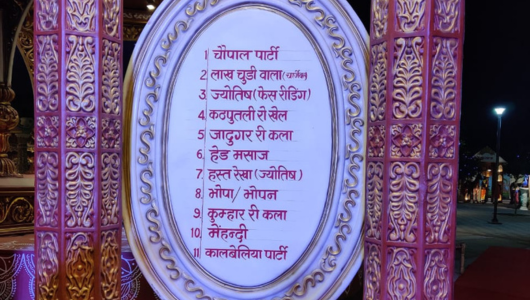 1 चौपाल पार्टी
2 लाख चुडी वाला
3 ज्योतिष (फेस रीडिंग)
4 कठपुतली रो खेल
5 जादुगर री कला
6. हेड मसाज
7. हस्त रेखा (ज्योतिष)
8. भोपा/भोपन
9. कुम्हार री कला
10. मेंहन्दी
11 कालबेलिया पार्टी